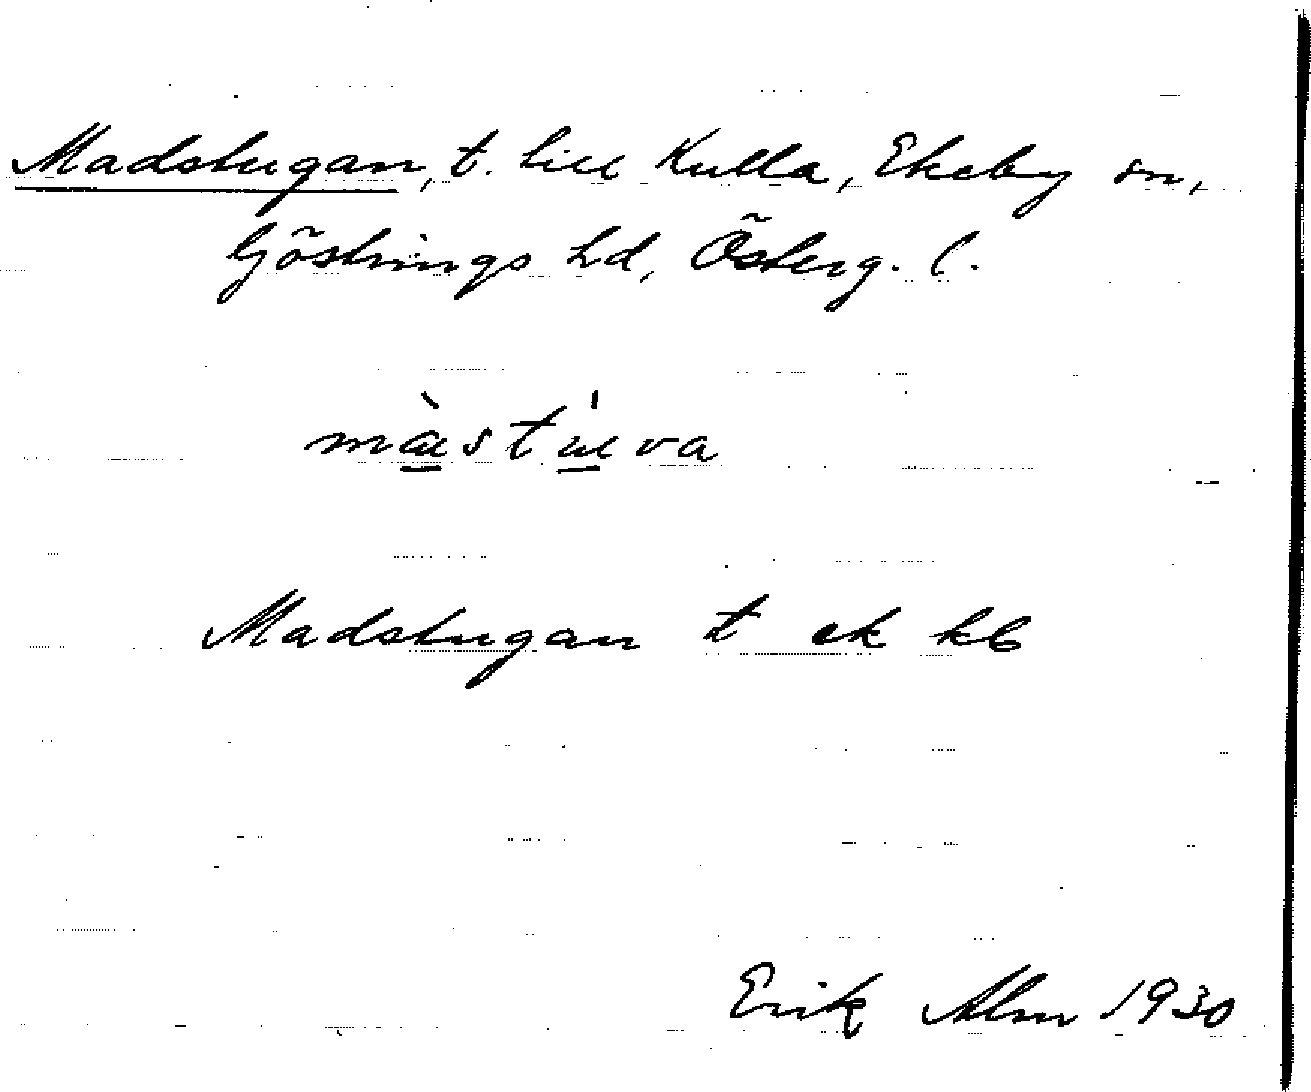 Madstugan, t. till Kulla, Ekeby sn,
Göstrings hd, Österg. l.
mὰstúva
Madstugan t ek kb
Erik Alm 1930